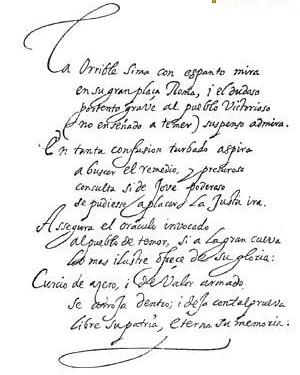 La orrible sima con espanto mira
en su gran plaça Roma, i el dudoso
portento grave al pueblo Victorioso
(no enseñado a temer) suspenso admira.
En tanta confusion turbado aspira
a buscar el remedio, y presuroso
consulta si de Jove poderoso
se pudiesse aplacar La justa ira.
Assegura el oraculo invocado
al pueblo de temor, si a la gran cueva
lo mas ilustre ofrece de su gloria:
Curcio de azero, i de Valor armado,
se arroja dentro; i deja con tal prueva
libre su patria, eterna su memoria.